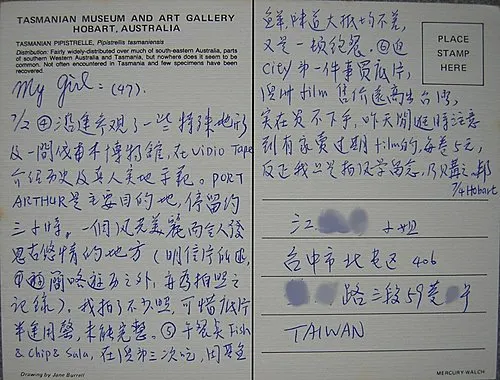 TASMANIAN MUSEUM AND ART GALLERY
HOBART, AUSTRALIA
TASMANIAN PIPISTRELLE, Pipistrella tasmaniensis
Distribution: Fairly widely-distributed over much of south-eastern Australia, parts
of southern Western Australia and Tasmania, but nowhere does it seem to be
common. Not often encountered in Tasmania and few specimens have been
recovered.
My Girl: (47).
7/2 ④沿途參觀了一些特殊地形
及一間伐木博物館,在ViDio Tape
介紹歷史及真人實地示範。PORT
ARTHUR是主要目的地,停留約
三小時。一個風光美麗而令人發
思古悠情的地方(明信片
簡略 之外,
記錄)。我拍了不少照,可惜底片
半途用罄,未能完整。⑤午餐吳Fish
& chip & Sala,在 三次吃,用
Drawing by Jane Burrell
鮮,味道大抵均不差,
又是一頓飽餐。⑥返
City第一件事買底片,
澳洲film售價遠高出台灣,
實在買不下手,昨天閒逛時注意
到有家賣过期film的,每卷5元,
反正我只是拍風景留念,乃購之一捲
7/4 Hobart
PLACE
STAMP
HERE
江 小姐
台中市北屯區 406
路三段59巷 号
TAIWAN
MERCURY-WALCH